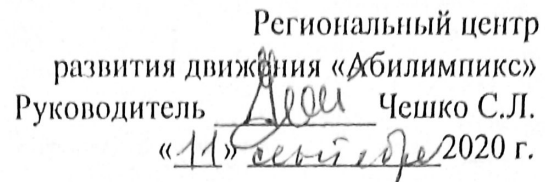 Региональный центр
развития движения «Абилимпикс»
Руководитель Чешко С.Л.
«11» сентября 2020 г.